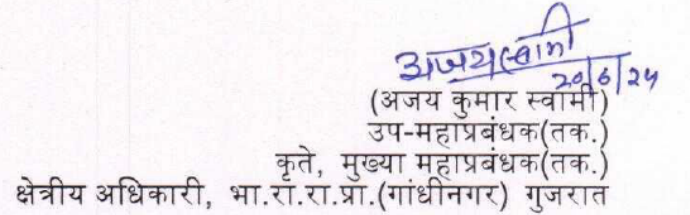 अजय स्वामी
20/6/24
(अजय कुमार स्वामी)
उप-महाप्रबंधक(तक.)
कृते, मुख्या महाप्रबंधक(तक.)
क्षेत्रीय अधिकारी, भा.रा.रा.प्रा.(गांधीनगर) गुजरात